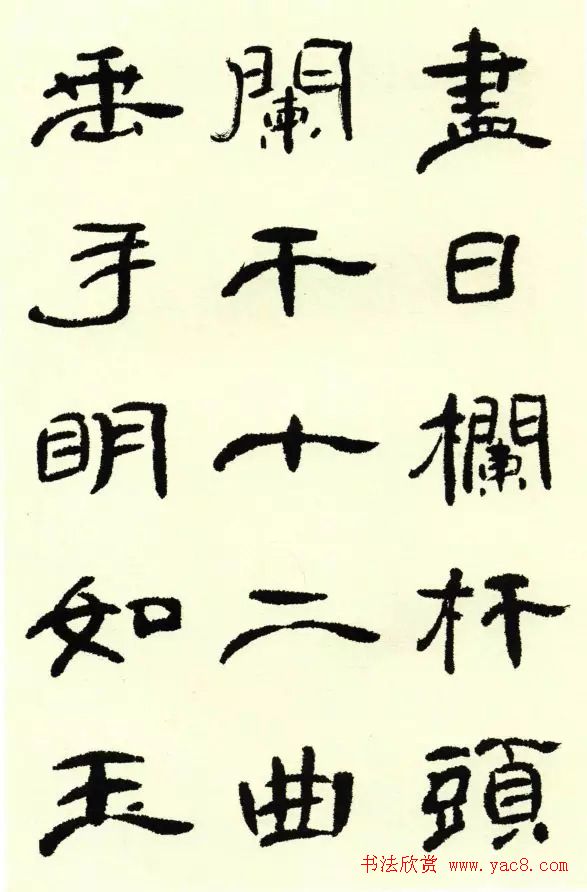 盡日欄杆頭
闌干十二曲
垂手明如玉
书法欣赏 www.yac8.com